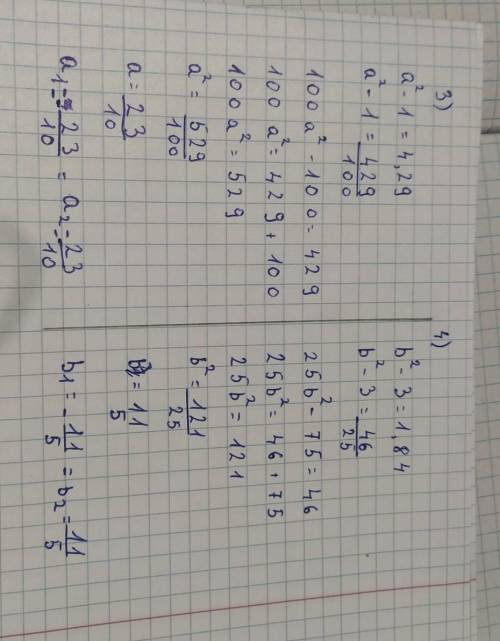 3)
a² - 1 = 4,29
a² - 1 = 429/100
100 a² - 100 = 429
100 a² = 429 + 100
100 a² = 529
a² = 529/100
a = 23/10
a₁ = - 23/10 = a₂ = 23/10
4)
b² - 3 = 1,84
b² - 3 = 46/25
25 b² - 75 = 46
25 b² = 46 + 75
25 b² = 121
b² = 121/25
b = 11/5
b₁ = - 11/5 = b₂ = 11/5